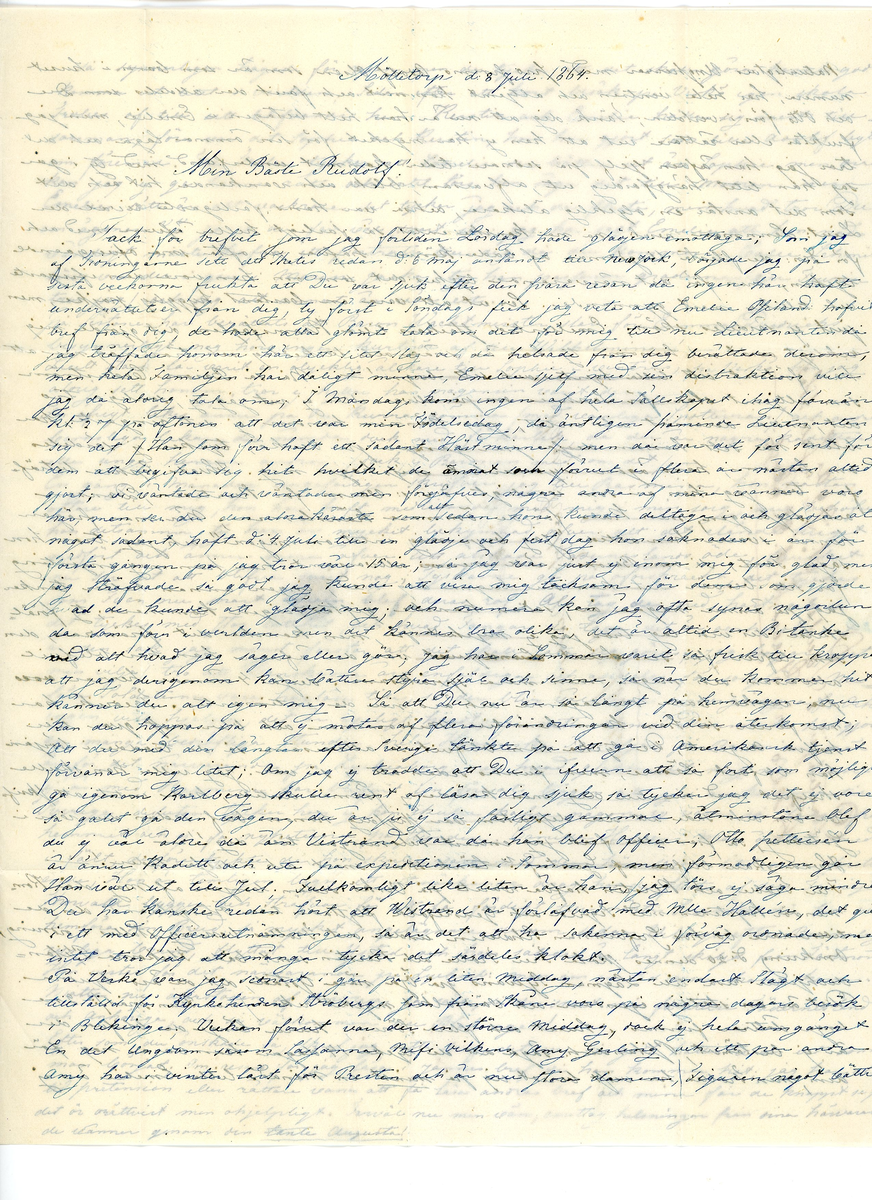 Mölletorp d. 8 Juli 1864.
Min Bäste Rudolf!
Tack för brefvet som jag förliden Lördag hade glädjen emottaga; Som jag
af Tidningarne sett ett skepp redan d. 6 maj anländt till New York, började jag på
sista veckorna frukta att Du var sjuk efter den svåra resan då ingen här haft
underrättelser från dig, ty först i Söndags fick jag veta att Emelie haft
bref från dig, de hade alla glömt tala om det för mig till nu Lieutnanten då
jag träffade honom här ett litet slag och då helsade från dig berättade derom,
men hela Familjen har dåligt minne, Emelie sjelf med sin distraktion vill
jag då aldrig tala om; I Måndag kom ingen af hela Sällskapet ihåg förrän
kl. 7 på aftonen att det var min Födelsedag, då äntligen påminde Lieutnanten
sig det (Han som förr haft ett sådant Hästminne) men då var det för sent för
dem att begifva sig hit hvilket de annat och förrut i flera år nästan altid
gjort; vi väntade och väntade men förgäfves, några andra af mina vänner voro
här, men ser du den aldrakäraste som altsedan hon kunde deltaga i och glädjas åt
något sådant, haft d. 4 Juli till en glädje och fest dag hon saknades i år för
första gången på jag tror vår 15 år; jag var just ej inom mig för glad men
jag sträfvade så godt jag kunde att visa mig tacksam för dem som gjorde
hvad de kunde att glädja mig; och numera kan jag ofta synas någorlunda
då som förr i verlden men det kännes bra olika, det är altid en Bitanke
vid allt hvad jag säger eller gör; jag har i Sommar varit så frisk till kroppen
att jag derigenom kan bättre styra själ och sinne, så när du kommer hit
känner du alt igen mig. Så att Du nu är så långt på hemvägen, nu
kan du hoppas på att ej mötas af flera förändringar vid din återkomst;
Att du med din längtan efter Sverige tänkte på att gå i Amerikansk tjenst
förvånar mig litet; Om jag ej trodde att Du i ifvern att så fort som möjligt
gå igenom Karlberg skulle rent af läsa dig sjuk så tycker jag det ej vore
så galet gå den vägen, du är ju ej så farligt gammal, åtminstone blef
du ej väl äldre då än Wistrand var då han blef officer, Otto Pettersén
är ännu Kadett och ute på expeditionen i Sommar, men förmodligen går
Han väl ut till Jul. Fullkomligt lika liten är han, jag törs ej säga mindre
Du har kanske redan hört att Wistrand är förlofvad med Mlle Hallén, det gick
i ett med Officersutnämningen, så är det att ha sakerna i förväg ordnade, men
intet tror jag att många tycka det särdeles klokt.
På Verkö var jag senast i går på en liten Middag, nästan endast Slägt och
tillstäld för Kyrkoherden Ströbergs som från Skåne voro på några dagars besök
i Blekinge. Veckan förut var der en större Middag, dock ej hela umgänget
En del Ungdom såsom Susanna, Mifi Vilkens, Amy Gerling och ett par andra
Amy har i vinter läst för Presten och är nu stora damen, figuren något bättre
det är orätt men ohjelpligt. Farväl nu min vän, mottag helsningar från dina härvarande
de vänner genom din Tante Augusta